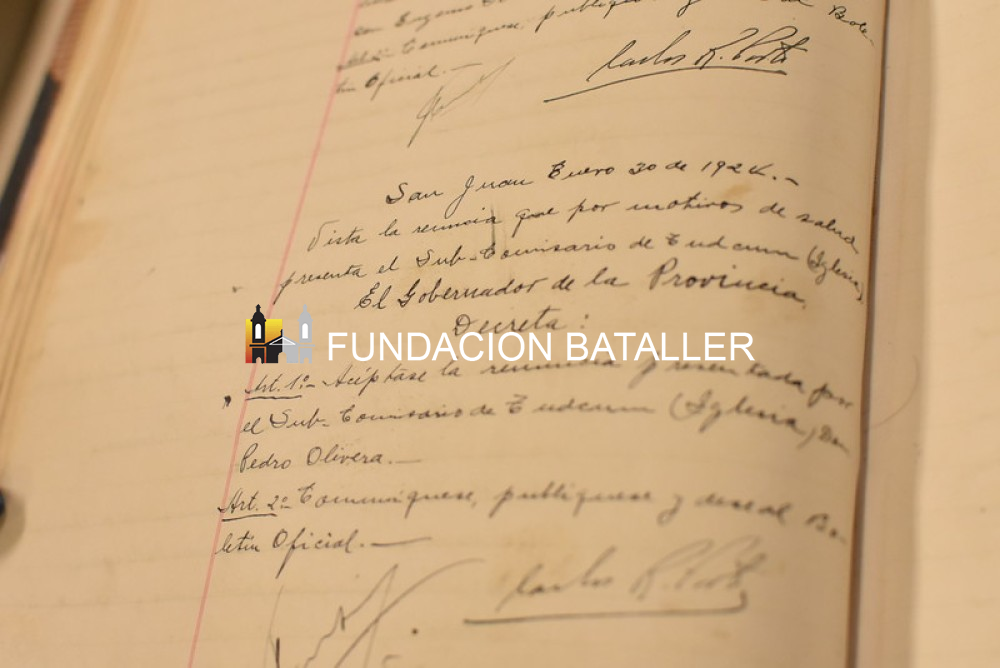 Comuníquese, publíquese y
al Bole-
tin Oficial.—
Carlos R. Porto
San Juan Enero 30 de 1924.-
Vista la renuncia que por motivos de salud
presenta el Sub-Comisario de Tudcum (Iglesia),
El Gobernador de la Provincia,
Decreta:
FUNDACION BATALLER
Art. 1º- Acéptase la renuncia presentada por
el Sub-Comisario de Tudcum (Iglesia) Don
Pedro Olivera.—
Art. 2º- Comuníquese, publíquese y dese al Bo-
letín Oficial.—
Carlos R. Porto